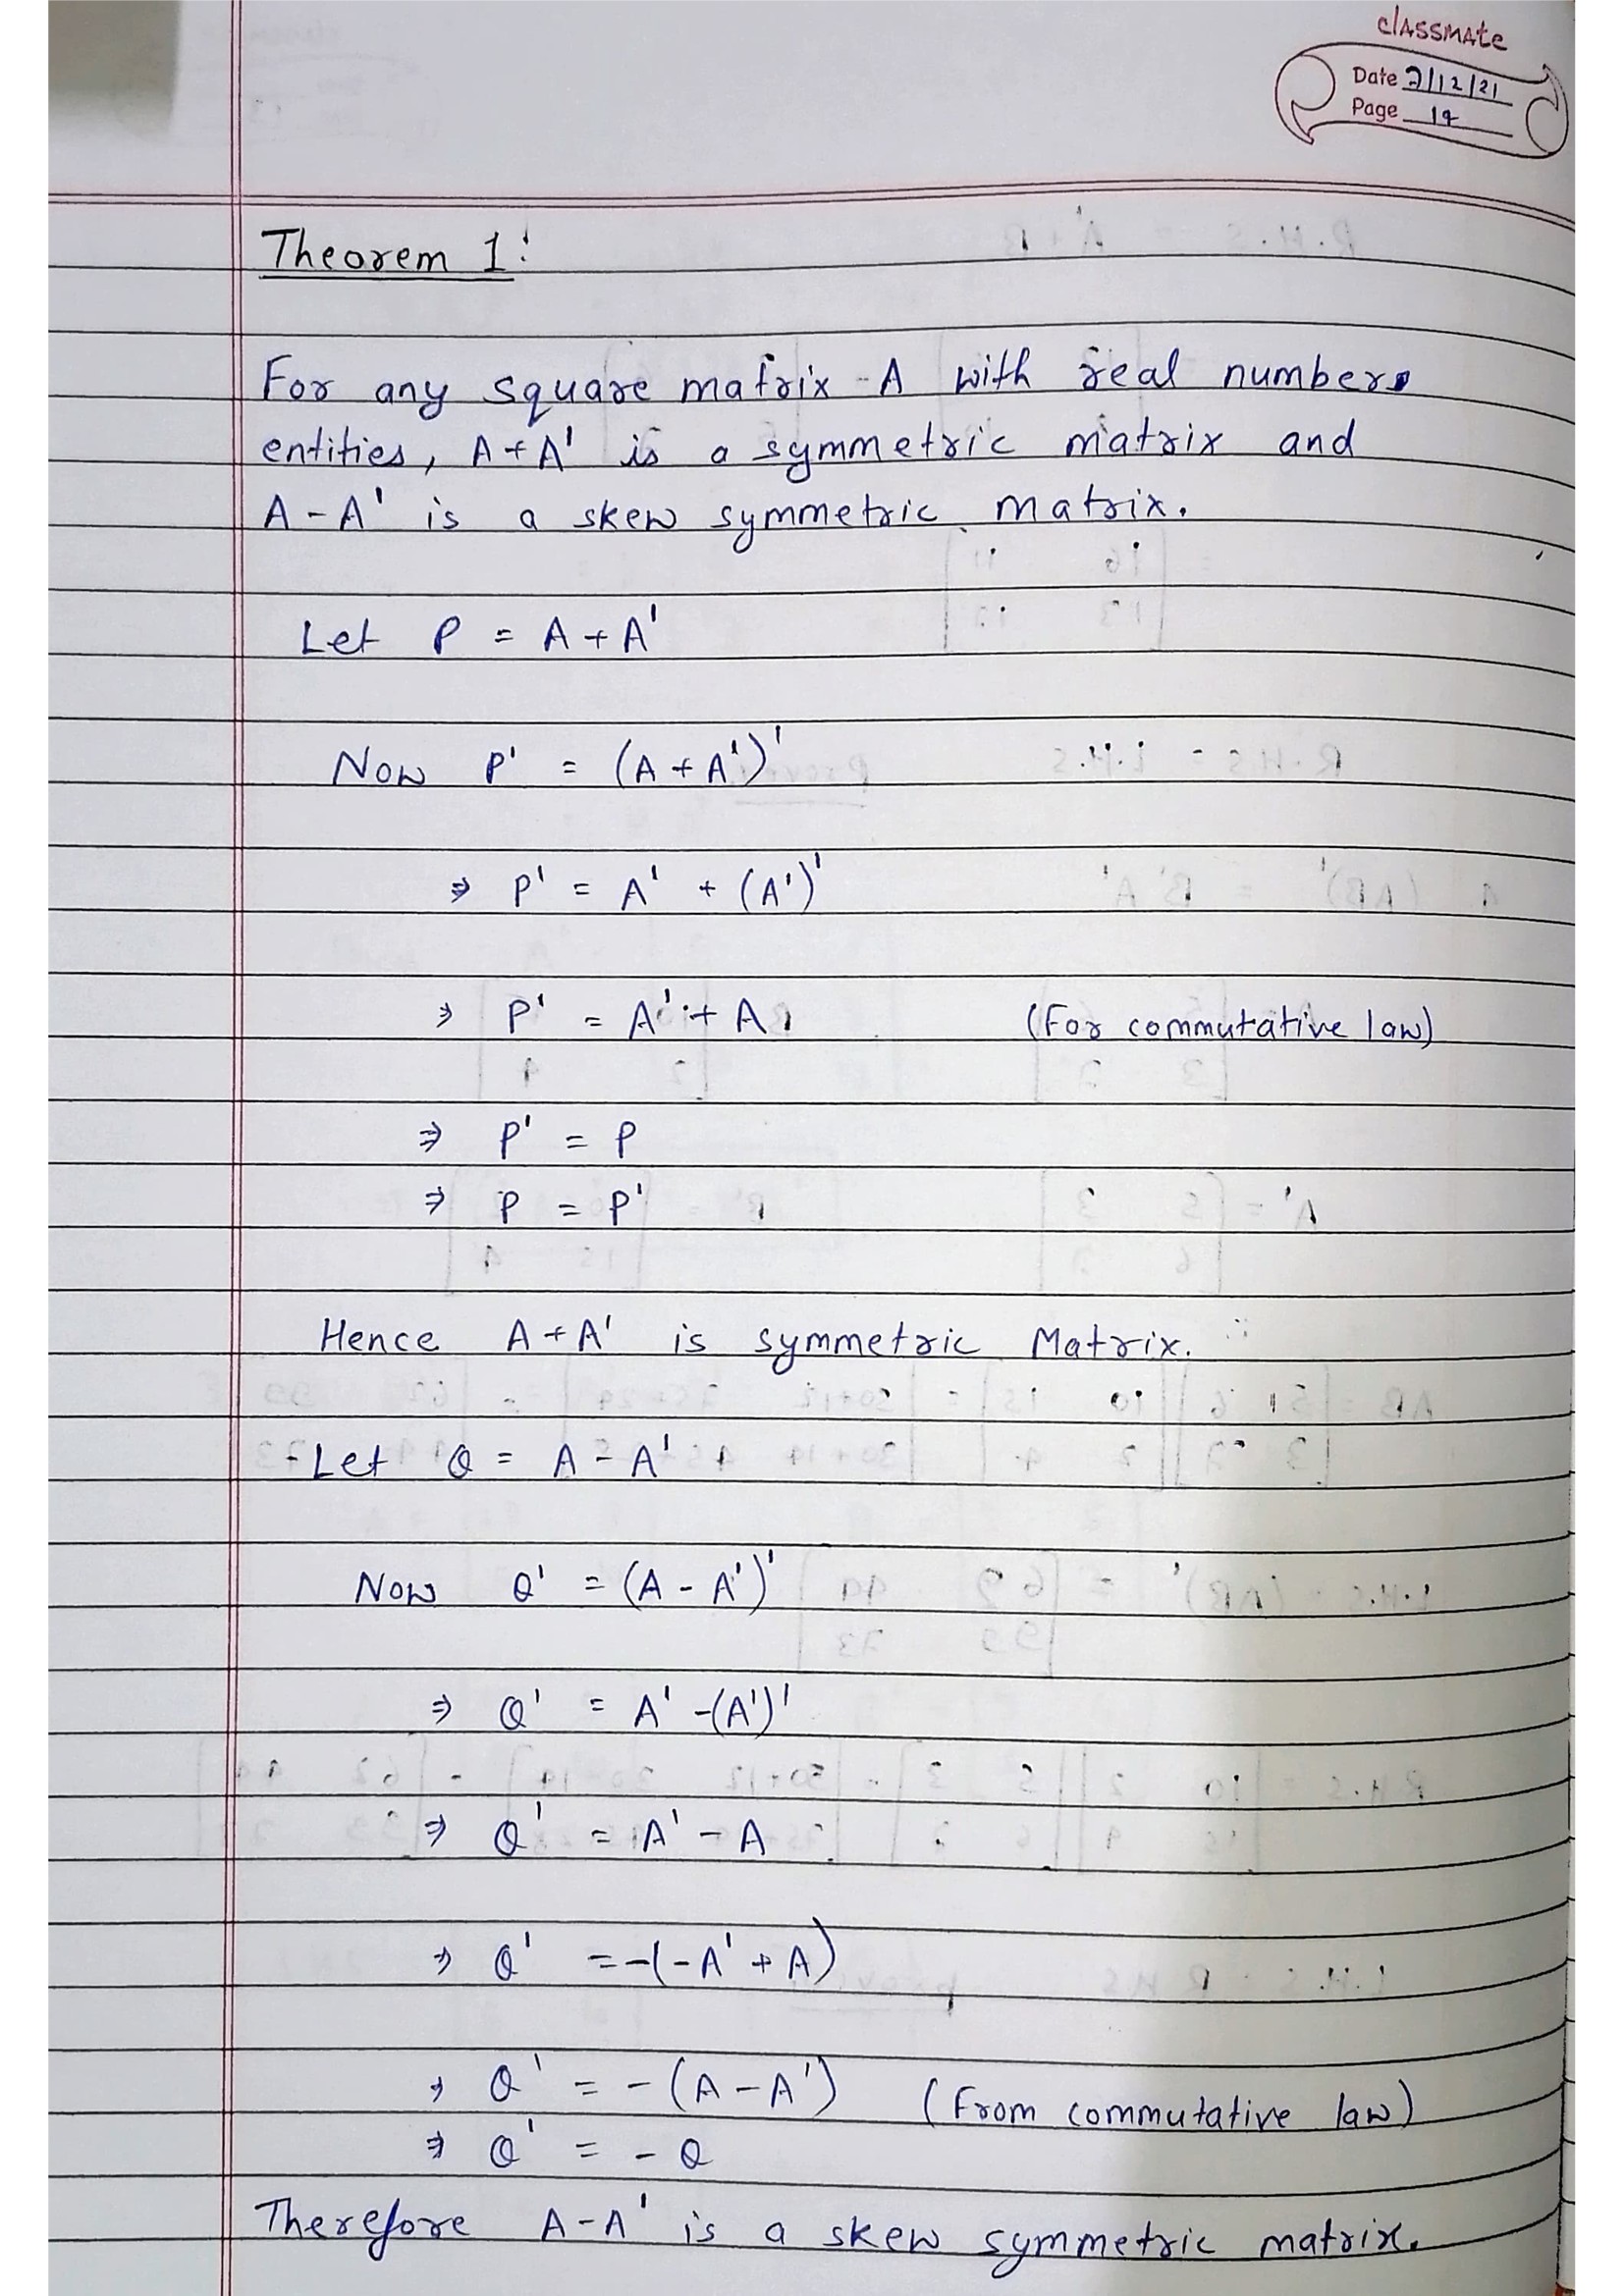 classmate
Date 7/12/21
Page 19
Theorem 1:
For any square matrix A with real numbers
entities, A + A' is a symmetric matrix and
A - A' is a skew symmetric matrix.
Let P = A + A'
Now P' = (A + A')'
⇒ P' = A' + (A')'
⇒ P' = A' + A (For commutative law)
⇒ P' = P
⇒ P = P'
Hence A + A' is symmetric Matrix.
Let Q = A - A'
Now Q' = (A - A')'
⇒ Q' = A' -(A')'
⇒ Q' = A' - A
⇒ Q' = -(-A' + A)
⇒ Q' = - (A - A') (From commutative law)
⇒ Q' = - Q
Therefore A - A' is a skew symmetric matrix.